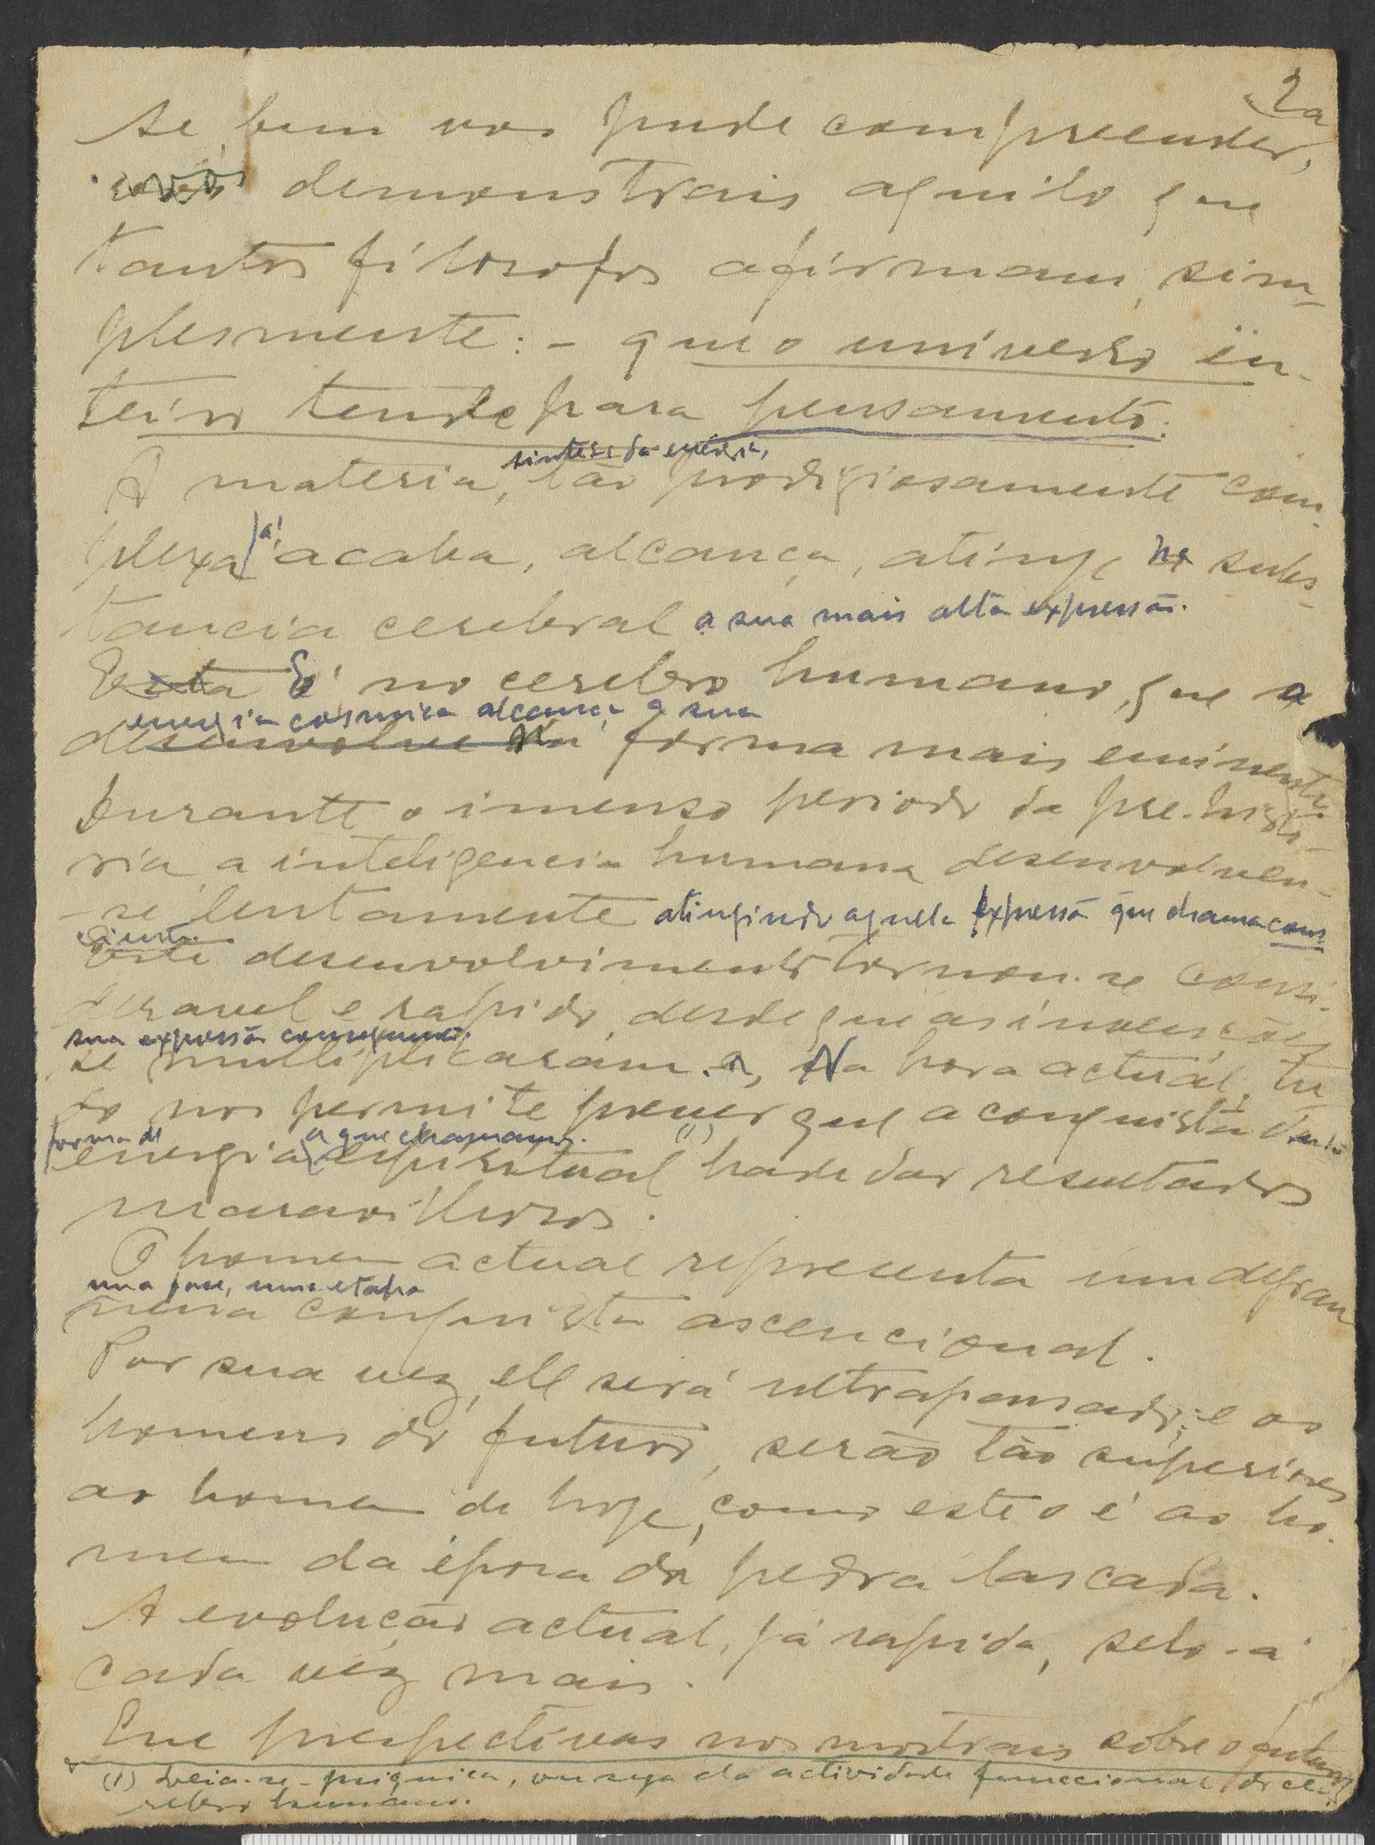 2a
Se bem vos pude compreender,
vós demonstrais aquilo que
tantos filosofos afirmam, sim-
plesmente: - que o universo in-
teiro tende para pensamento.
sintese da energia,
A materia, tão prodigiosamente com-
plexa já acaba, alcança, atinge na subs-
tancia cerebral a sua mais alta expressão.
Esta É no cerebro humano, que a
energia cosmica alcança a sua
desenvolve na forma mais eminente
Durante o imenso periodo da pre-histo-
ria, a inteligencia humana desenvolveu-
-se lentamente atingindo aquela expressão que chama cons
ciencia.
Este desenvolvimento tornou-se consi-
deravel e rapido, desde que as invenções
sua expressão consequente.
se multiplicaram. Na hora actual, tu-
do nos permite prever que a conquista desta
forma de a que chamamos (1)
energia espiritual hade dar resultados
maravilhosos.
O homem actual representa um degrau
uma fase, uma etapa
numa conquista ascencional.
Por sua vez, ele será ultrapassado; e os
homens do futuro, serão tão superiores
ao homem de hoje, como este o é ao ho-
mem da época da pedra lascada.
A evolução actual, já rapida, selo-á
cada vez mais.
Que perspectivas nos mostrais sobre o futuro
(1) Leia-se - psiquica, ou seja da actividade funccional do ce-
rebro humano.